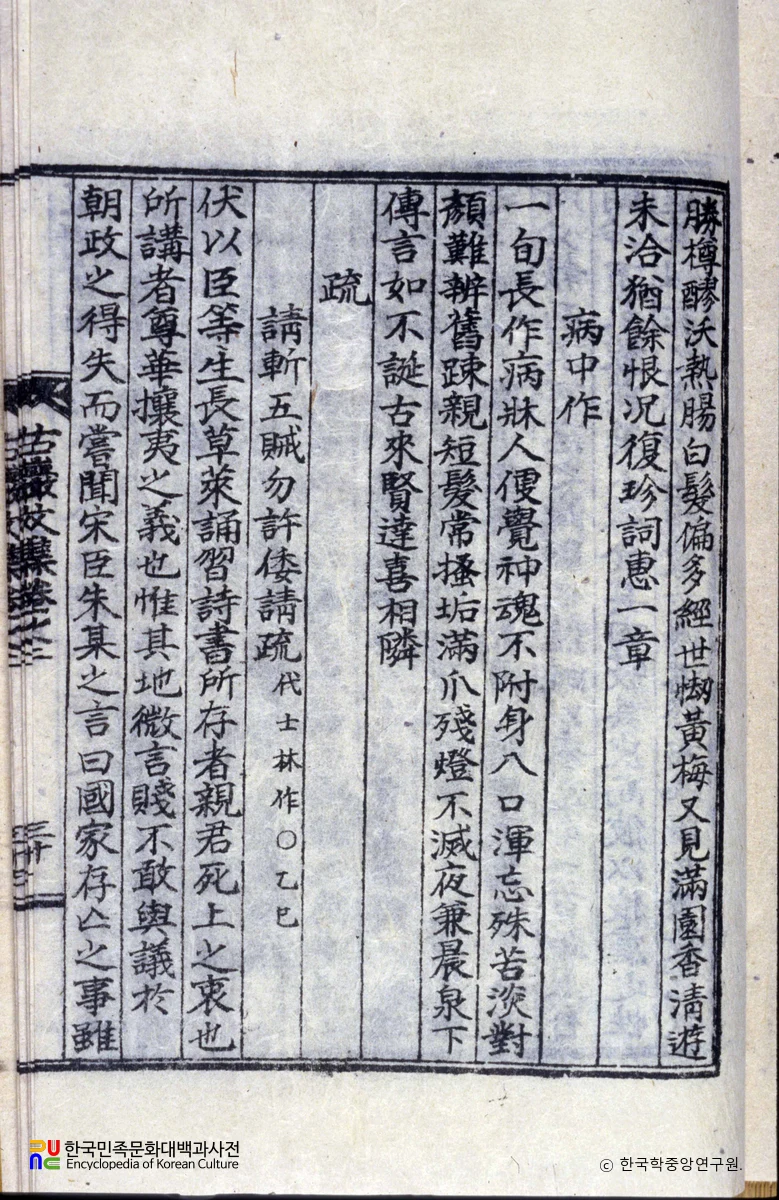 勝樽醪沃熱腸白髮偏多經世㤼黃梅又見滿園香淸遊
未洽猶餘恨况復珍詞惠一章
病中作
一旬長作病牀人便覺神魂不附身八口渾忘殊苦淡對
顏難辨舊踈親短髮常搔垢滿爪殘燈不滅夜兼晨泉下
傳言如不誕古來賢達喜相隣
疏
請斬五賊勿許倭請疏 代士林作○乙巳
伏以臣等生長草萊誦習詩書所存者親君死上之衷也
所講者尊華攘夷之義也惟其地微言賤不敢與議於
朝政之得失而嘗聞宋臣朱某之言曰國家存亾之事雖
古巖文集卷之三
한국민족문화대백과사전
Encyclopedia of Korean Culture
© 한국학중앙연구원.